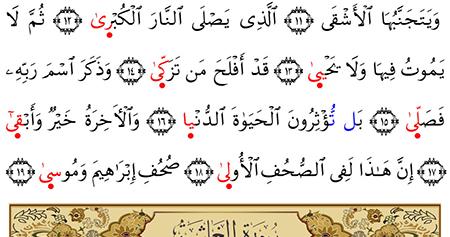 وَيَتَجَنَّبُهَا ٱلْأَشْقَى ﴿١١﴾ ٱلَّذِى يَصْلَى ٱلنَّارَ ٱلْكُبْرىٰ ﴿١٢﴾ ثُمَّ لَا
يَمُوتُ فِيهَا وَلَا يَحْيىٰ ﴿١٣﴾ قَدْ أَفْلَحَ مَن تَزَكّىٰ ﴿١٤﴾ وَذَكَرَ ٱسْمَ رَبِّهِۦ
فَصَلّىٰ ﴿١٥﴾ بَل تُّؤْثِرُونَ ٱلْحَيَوٰةَ ٱلدُّنْيا ﴿١٦﴾ وَٱلْأَخِرَةُ خَيْرٌ وَأَبْقىٰ
﴿١٧﴾ إِنَّ هَـٰذَا لَفِى ٱلصُّحُفِ ٱلْأُولىٰ ﴿١٨﴾ صُحُفِ إِبْرَٰهِيمَ وَمُوسىٰ ﴿١٩﴾